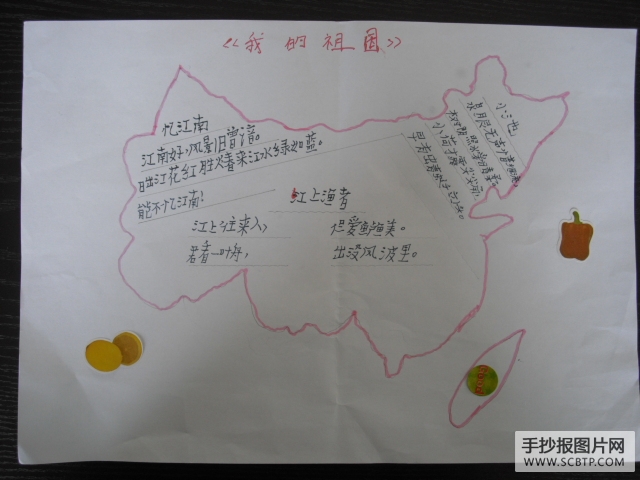 《我的祖国》
忆江南
江南好,风景旧曾谙。
日出江花红胜火,春来江水绿如蓝。
能不忆江南!
江上渔者
江上往来人,
但爱鲈鱼美。
君看一叶舟,
出没风波里。
小池
泉眼无声惜细流
树阴照水
小荷才露尖尖角
早有蜻蜓立上头。
good
手抄报图片网
WWW.SCBTP.COM